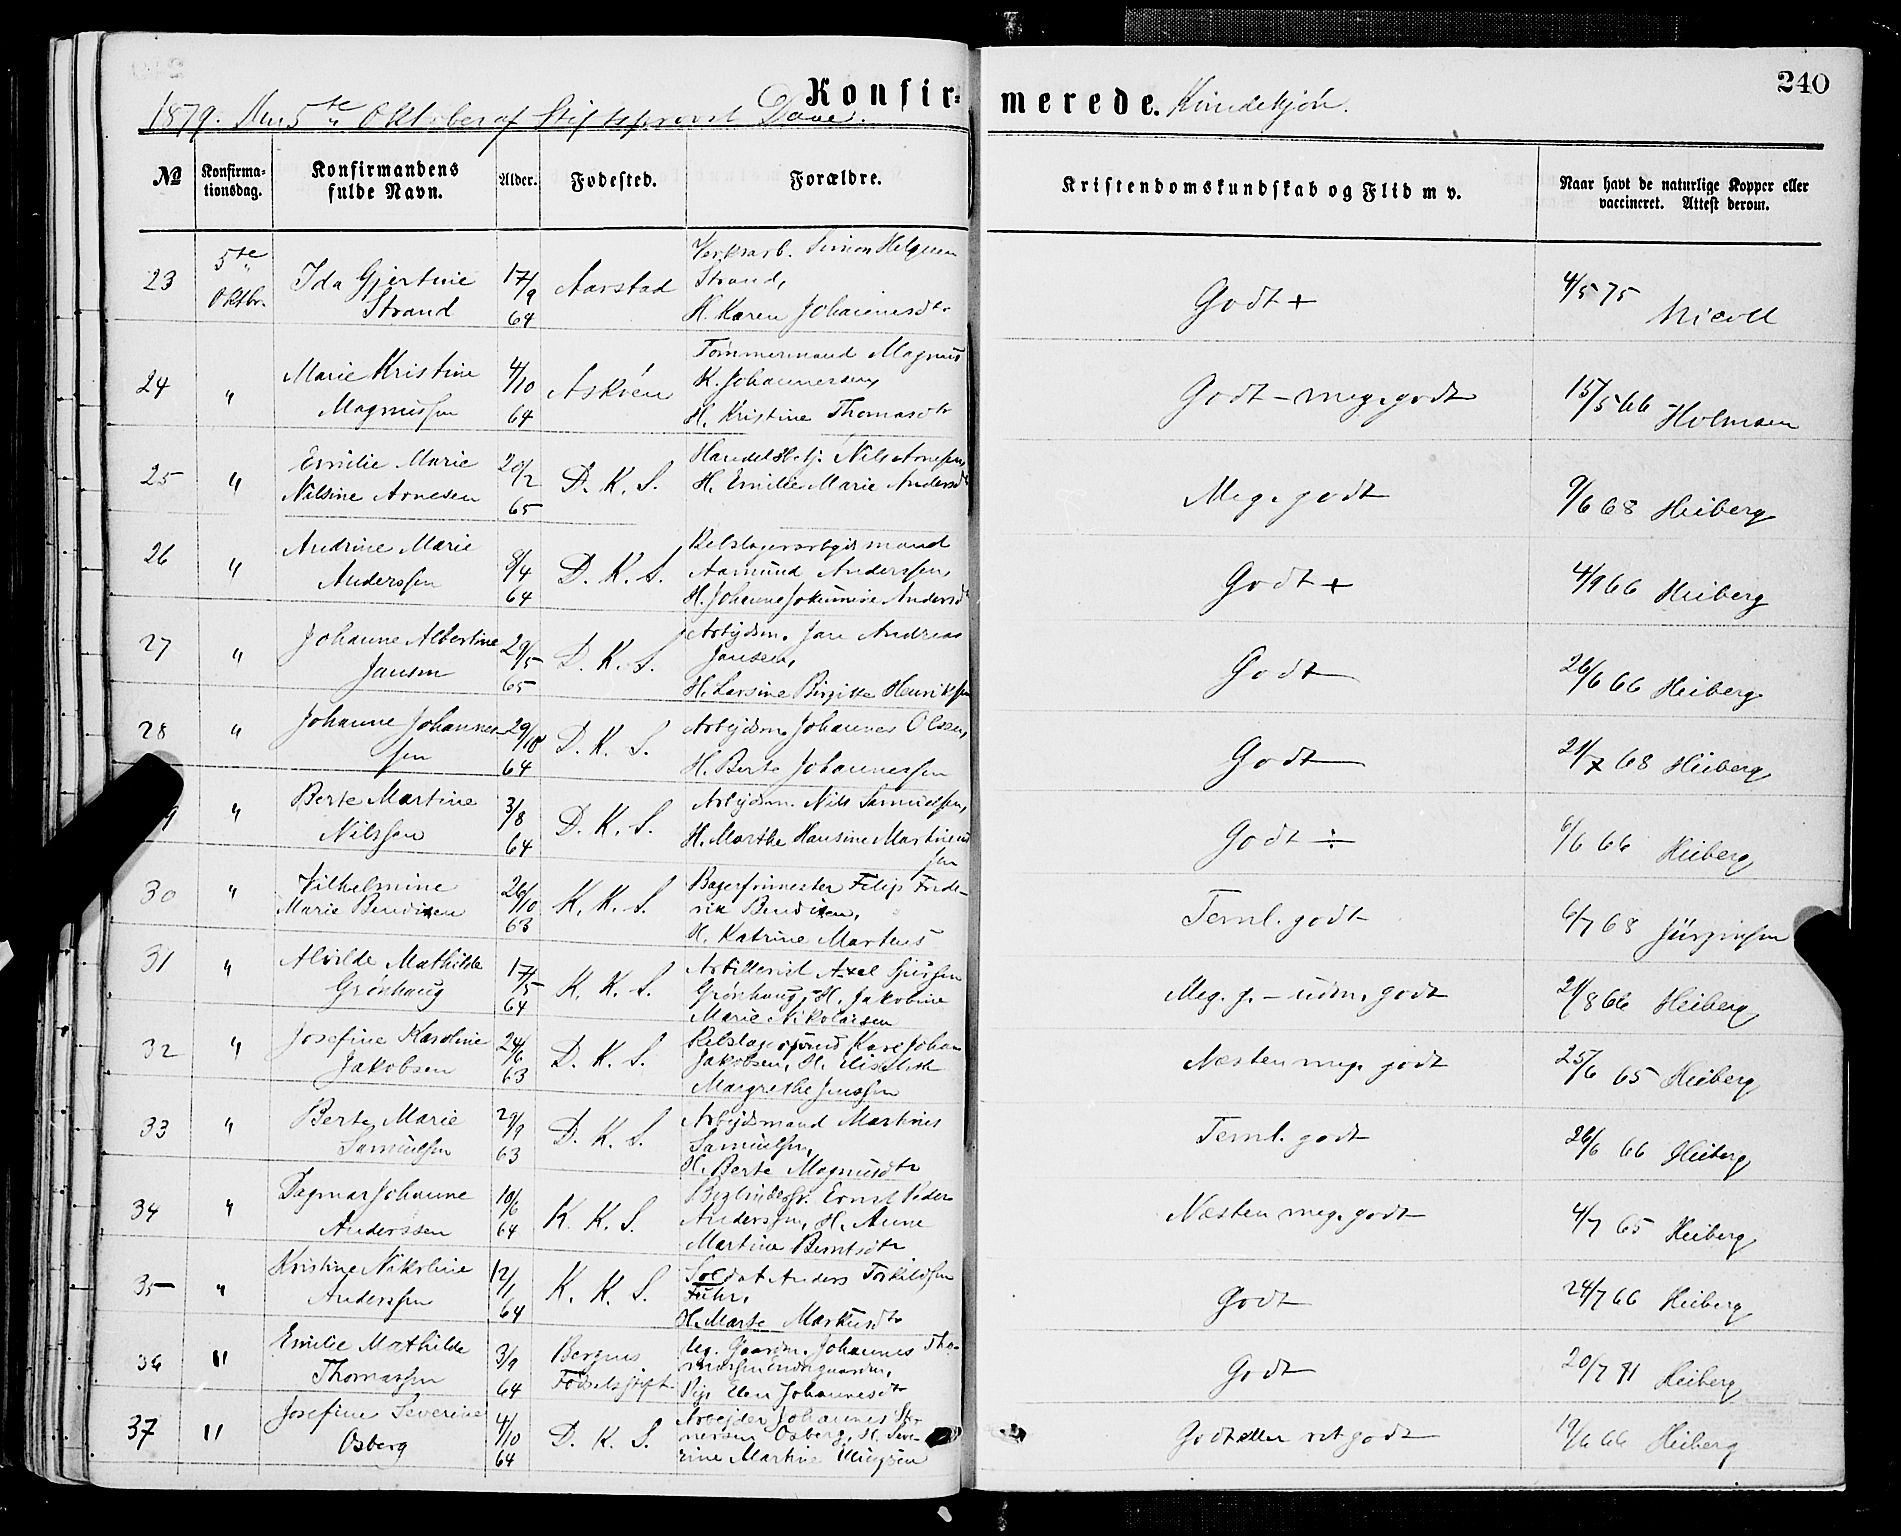 240
Konfir- merede. Kvindekjøn.
1879. Den 5te Oktober af Stiftsprovst Daae.
№ Konfirma-tionsdag. Konfirmandens fulde Navn. Alder. Fodested. Forældre. Kristendomskundskab og Flid m v. Naar havt de naturlige Kopper eller vaccineret. Attest derom.
23 5te Oktbr. Ida Gjertine Strand 17/9 64 Aarstad Verksarb. Simon Helgesen Strand, H. Karen Johannesdtr Godt + 4/5 75 Nicoll
24 " Marie Kristine Magnussen 4/10 64 Askøen Tømmermand Magnus K. Johannesen, H. Kristine Thomasdtr Godt - meg. godt 15/5 66 Holmsen
25 " Emilie Marie Nilsine Arnesen 20/2 65 D. K. S. Handelsbetj. Nils Arnesen, H. Emilie Marie Andersdtr Meg. godt 9/6 68 Heiberg
26 " Andrine Marie Anderssen 8/4 64 D. K. S. Rebslagerarbejdsmand Aamund Anderssen, H. Johanne Andersd Godt + 4/9 66 Heiberg
27 " Johanne Albertine Jansen 29/5 65 D. K. S. Arbejdsm. Jan Andreas Jansen, H. Larsine Birgitte Henriksen Godt 26/6 66 Heiberg
28 " Johanne Johannes-sen 29/10 64 D. K. S. Arbejdsm. Johannes Olsen, H. Berte Johannessen Godt 21/7 68 Heiberg
" Berte Martine Nilssen 3/8 64 D. K. S. Arbejdsm. Nils Samuelsen, H. Marthe Hansine Martinussen Godt ÷ 6/6 66 Heiberg
30 " Vilhelmine Marie Bendixen 26/10 63 K. K. S. Bagermester Filip Frede-rik Bendixen, H. Katrine Martens Teml. godt 6/7 68 Jürgensen
31 " Alvilde Mathilde Grønhaug 17/5 64 K. K. S. Artillerist Axel Grønhaug, H. Jakobine Marie Nikolaisen Meg. g. - udm. godt 21/8 66 Heiberg
32 " Josefine Karoline Jakobsen 24/6 63 D. K. S. Karl Johan Jakobsen, H. Elisabeth Margrethe Jenssen Næsten meg. godt 25/6 65 Heiberg
33 " Berte Marie Samuelsen 29/9 63 D. K. S. Arbejdsmand Martines Samuelsen, H. Berte Magnusdtr Teml. godt 26/6 66 Heiberg
34 " Dagmar Johanne Anderssen 10/6 64 K. K. S. Ernst Peder Anderssen, H. Anne Martine Berntsdtr Næsten meg. godt 4/7 65 Heiberg
35 " Kristine Nikoline Anderssen 12/1 64 K. K. S. Soldat Anders Torkildsen Fuhr, H. Marte Markusdtr Godt 24/7 66 Heiberg
36 " Emilie Mathilde Thomassen 3/9 64 Bergens Fødselsstift. Ug. Gaardm. Johannes Tho-massen Pige Elen Johannesdtr Godt 20/7 71 Heiberg
37 " Josefine Severine Osberg 4/10 64 D. K. S. Arbejder Johannes Osberg, H. Seve-rine Martine Godt eller ret godt 19/6 66 Heiberg